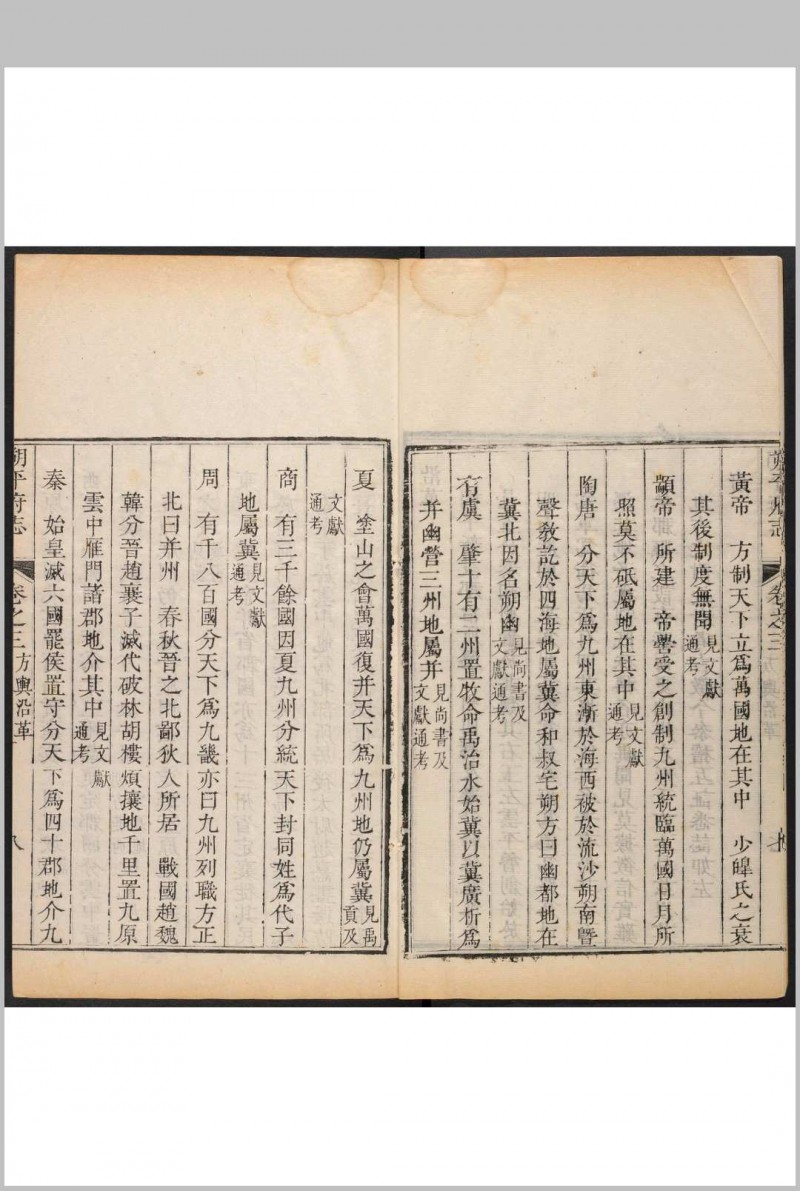 黃帝　方制天下立爲萬國地在其中　少皥氏之衰
其後制度無聞見文獻通考
顓帝　所建　帝嚳受之創制九州統臨萬國日月所
照莫不砥屬地在其中見文獻通考
陶唐　分天下爲九州東漸於海西被於流沙朔南曁
聲敎訖於四海地屬冀命和叔宅朔方曰幽都地在
冀北因名朔幽見尚書及文獻通考
有虞　肇十有二州置牧命禹治水始冀以冀廣析爲
并幽營三州地屬并見尚書及文獻通考
夏　塗山之會萬國復并天下爲九州地仍屬冀見禹貢及
文獻通考
商　有三千餘國因夏九州分統天下封同姓爲代子
地屬冀見文獻通考
周　有千八百國分天下爲九畿亦曰九州列職方正
北曰并州　春秋晉之北鄙狄人所居　戰國趙魏
韓分晉趙襄子滅代破林胡樓煩攘地千里置九原
雲中雁門諸郡地介其中見文獻通考
秦　始皇滅六國罷侯置守分天下爲四十郡地介九
朔平府志　卷之三　方輿沿革　八